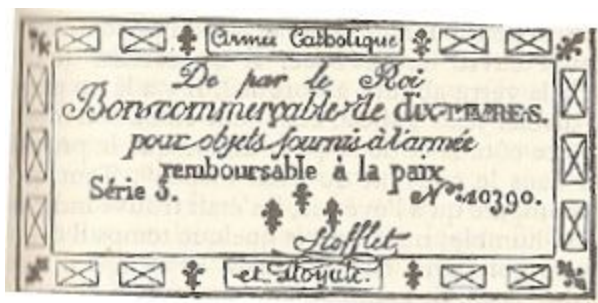 Armée Catholique
De par le Roi
Bon commerçable de DIX LIVRES.
pour objets fournis à l'armée
remboursable à la paix
Série 3. Nos. 10390.
Stofflet
et Royale.